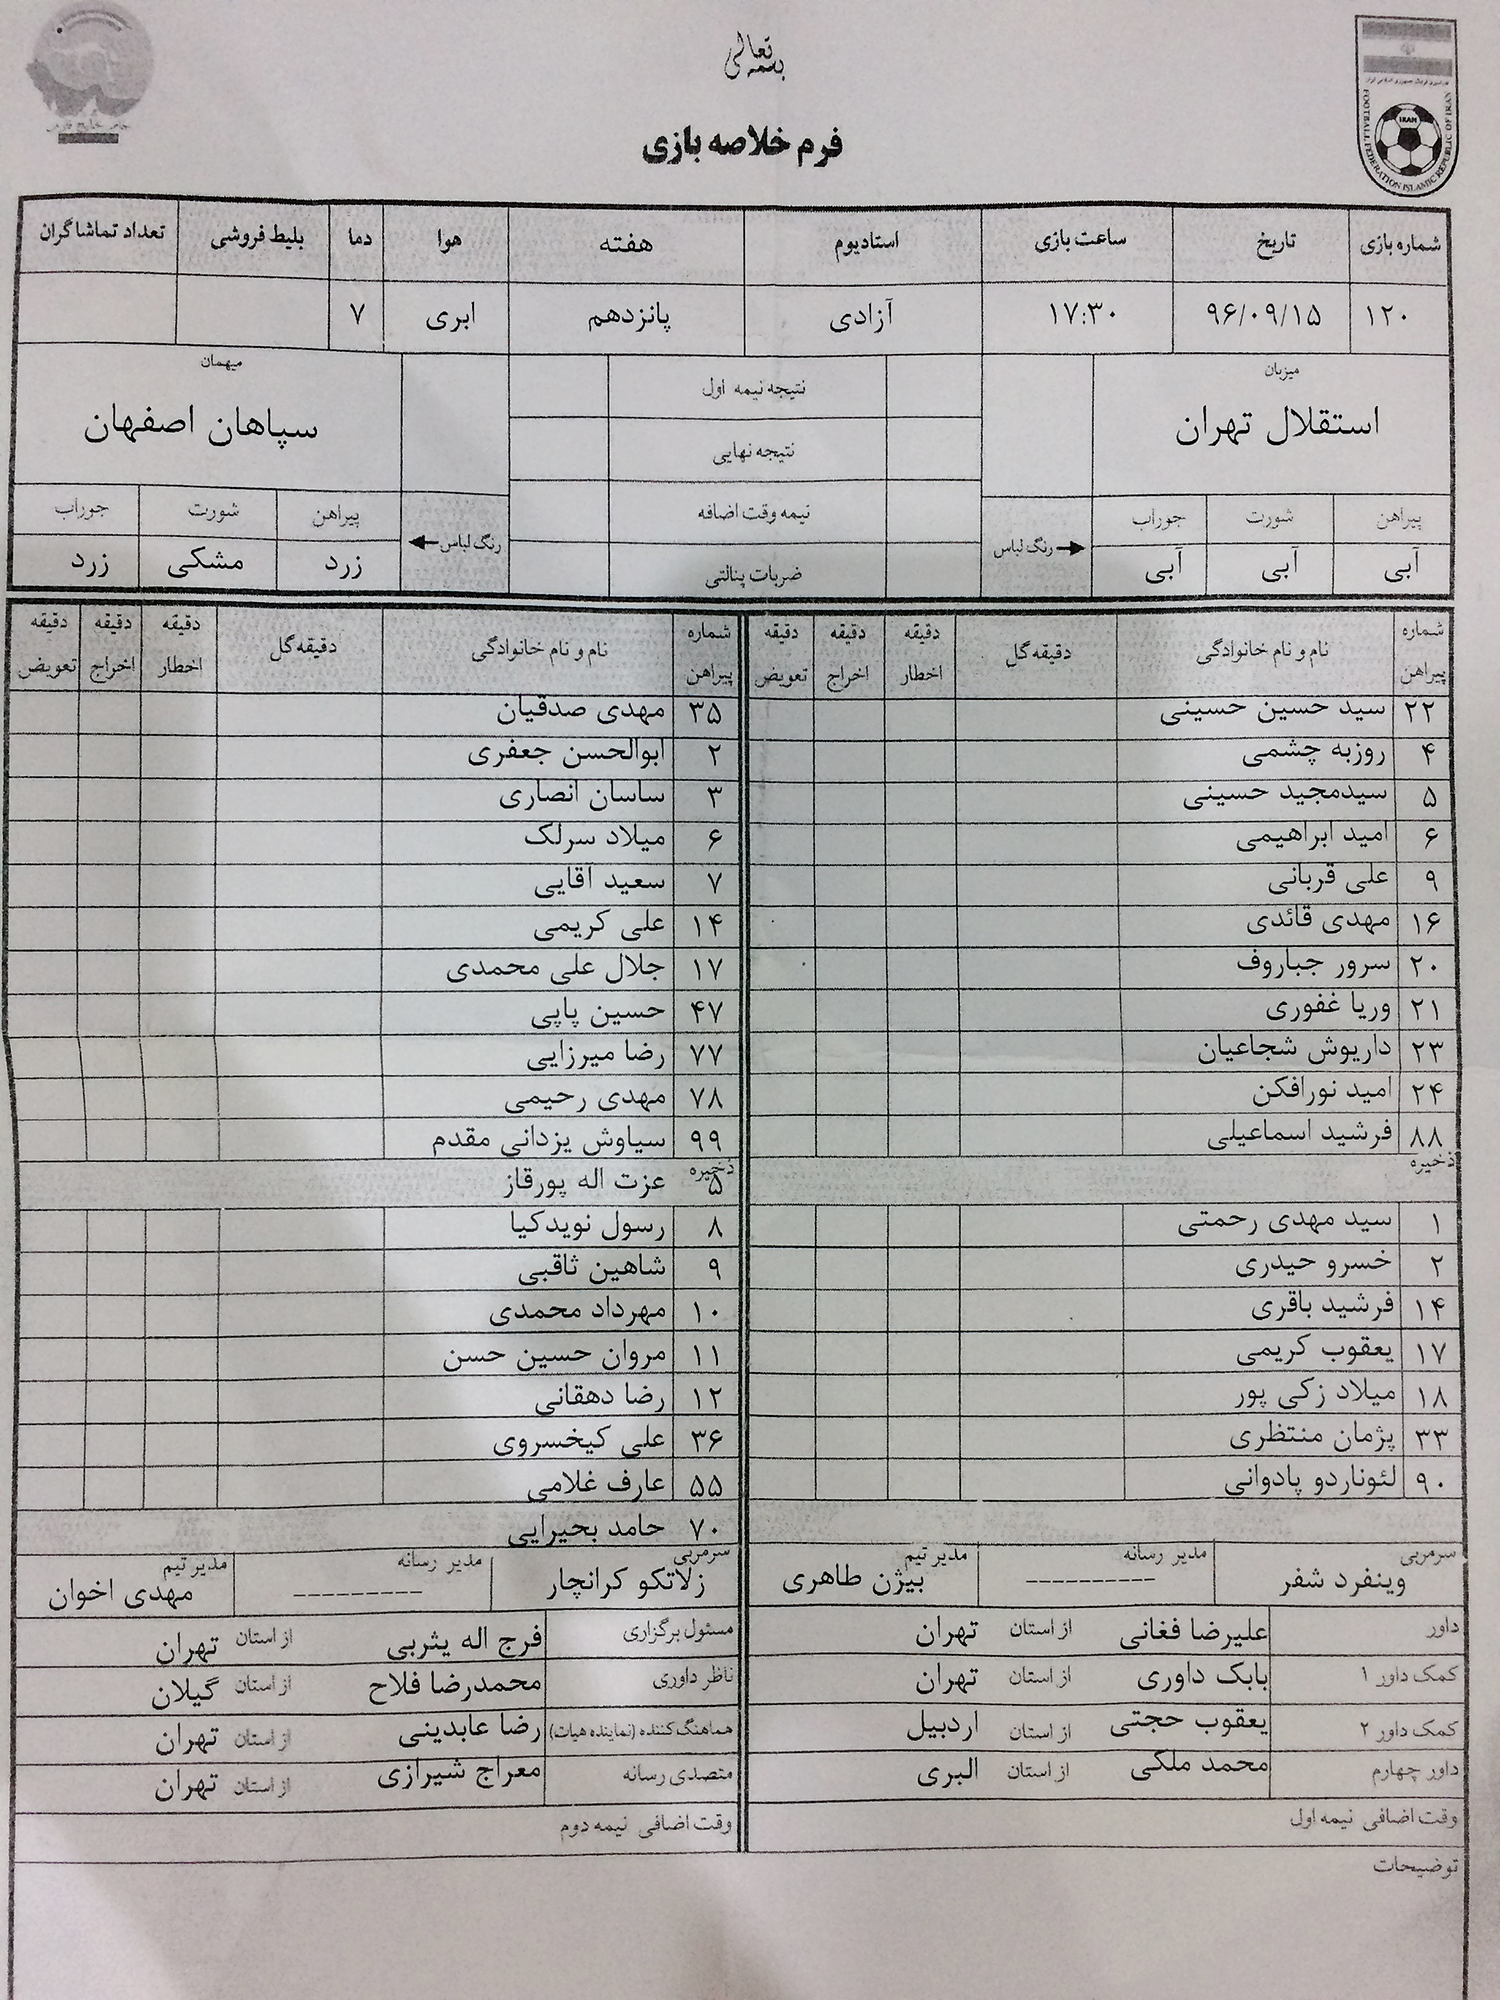 بسمه تعالی
FOOTBALL FEDERATION ISLAMIC REPUBLIC OF IRAN
IRAN
جام خلیج فارس
فرم خلاصه بازی
شماره بازی تاریخ ساعت بازی استادیوم هفته هوا دما بلیط فروشی تعداد تماشاگران
۱۲۰ ۹۶/۰۹/۱۵ ۱۷:۳۰ آزادی پانزدهم ابری ۷
میزبان نتیجه نیمه اول میهمان
استقلال تهران نتیجه نهایی سپاهان اصفهان
پیراهن شورت جوراب رنگ لباس نیمه وقت اضافه رنگ لباس پیراهن شورت جوراب
آبی آبی آبی ضربات پنالتی زرد مشکی زرد
شماره پیراهن نام و نام خانوادگی دقیقه گل دقیقه اخطار دقیقه اخراج دقیقه تعویض
۲۲ سید حسین حسینی
۴ روزبه چشمی
۵ سیدمجید حسینی
۶ امید ابراهیمی
۹ علی قربانی
۱۶ مهدی قائدی
۲۰ سرور جباروف
۲۱ وریا غفوری
۲۳ داریوش شجاعیان
۲۴ امید نورافکن
۸۸ فرشید اسماعیلی
ذخیره
۱ سید مهدی رحمتی
۲ خسرو حیدری
۱۴ فرشید باقری
۱۷ یعقوب کریمی
۱۸ میلاد زکی پور
۳۳ پژمان منتظری
۹۰ لئوناردو پادوانی
سرمربی مدیر رسانه مدیر تیم
وینفرد شفر ---------- بیژن طاهری
داور علیرضا فغانی از استان تهران
کمک داور ۱ بابک داوری از استان تهران
کمک داور ۲ یعقوب حجتی از استان اردبیل
داور چهارم محمد ملکی از استان البری
وقت اضافی نیمه اول
شماره پیراهن نام و نام خانوادگی دقیقه گل دقیقه اخطار دقیقه اخراج دقیقه تعویض
۳۵ مهدی صدقیان
۲ ابوالحسن جعفری
۳ ساسان انصاری
۶ میلاد سرلک
۷ سعید آقایی
۱۴ علی کریمی
۱۷ جلال علی محمدی
۴۷ حسین پاپی
۷۷ رضا میرزایی
۷۸ مهدی رحیمی
۹۹ سیاوش یزدانی مقدم
ذخیره
۵ عزت اله پورقاز
۸ رسول نویدکیا
۹ شاهین ثاقبی
۱۰ مهرداد محمدی
۱۱ مروان حسین حسن
۱۲ رضا دهقانی
۳۶ علی کیخسروی
۵۵ عارف غلامی
۷۰ حامد بحیرایی
سرمربی مدیر رسانه مدیر تیم
زلاتکو کرانچار ---------- مهدی اخوان
مسئول برگزاری فرج اله یثربی از استان تهران
ناظر داوری محمدرضا فلاح از استان گیلان
هماهنگ کننده (نماینده هیات) رضا عابدینی از استان تهران
متصدی رسانه معراج شیرازی از استان تهران
وقت اضافی نیمه دوم
توضیحات